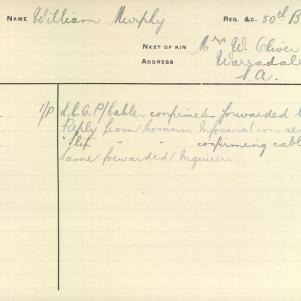 NAME William Murphy REG. &C. 50th B
NEXT OF KIN Mrs W. Oliver
ADDRESS Warradale
S.A.
1/P L.C.C. P/Cable confirmed forwarded
Reply from Commn Information
"Slip" " " confirming cabl
Same forwarded Inquirer.